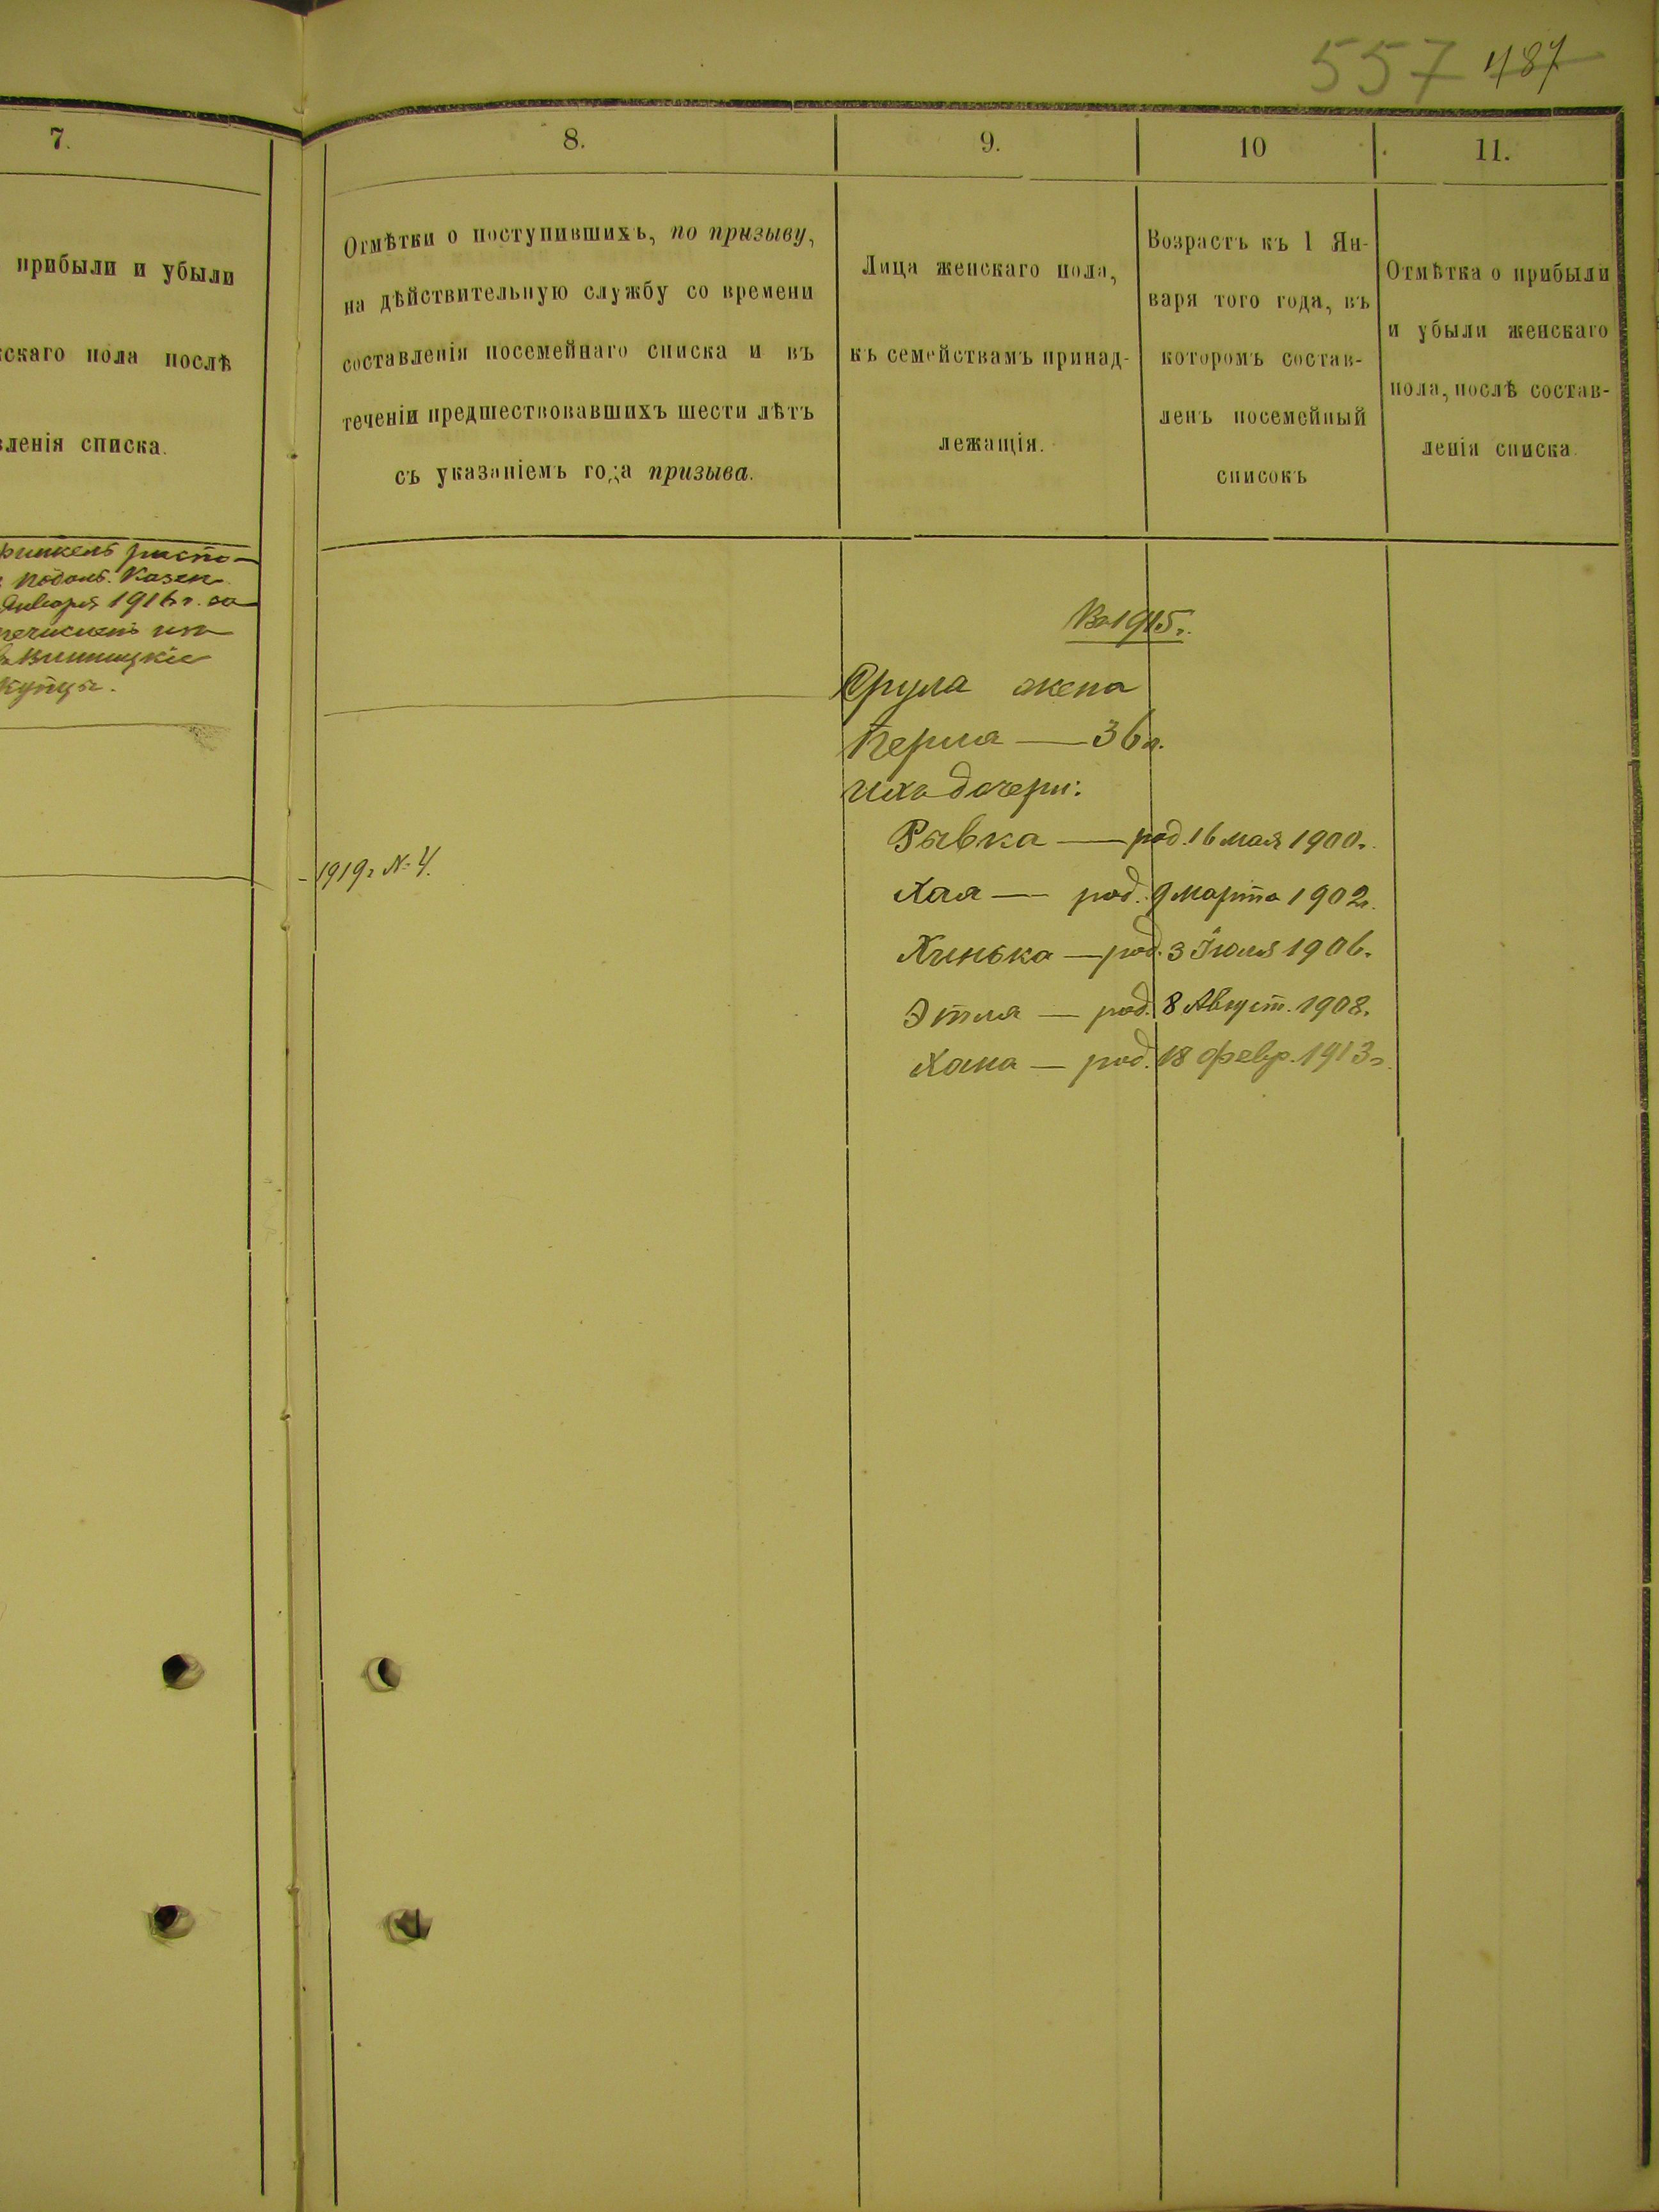 557 487
7.
прибыли и убыли
скаго пола послѣ
вленія списка.
Подол. Казен.
Января 1916 г. за
Винницкіе
купцы.
8.
Отмѣтки о поступившихъ, по призыву,
на дѣйствительную службу со времени
составленія посемейнаго списка и въ
теченіи предшествовавшихъ шести лѣтъ
съ указаніемъ года призыва.
1919 г. № 4.
9.
Лица женскаго пола,
къ семействамъ принад-
лежащія.
10
Возрастъ къ 1 Ян-
варя того года, въ
которомъ состав-
ленъ посемейный
списокъ
11.
Отмѣтка о прибыли
и убыли женскаго
пола, послѣ состав-
ленія списка.
Въ 1915 г.
Срула жена
Перля — 36 л.
ихъ дочери:
Рывка — род. 16 мая 1900 г.
Хая — род. 9 Марта 1902 г.
Хинька — род. 3 Іюля 1906 г.
Этля — род. 8 Август. 1908 г.
Хана — род. 18 Февр. 1913 г.